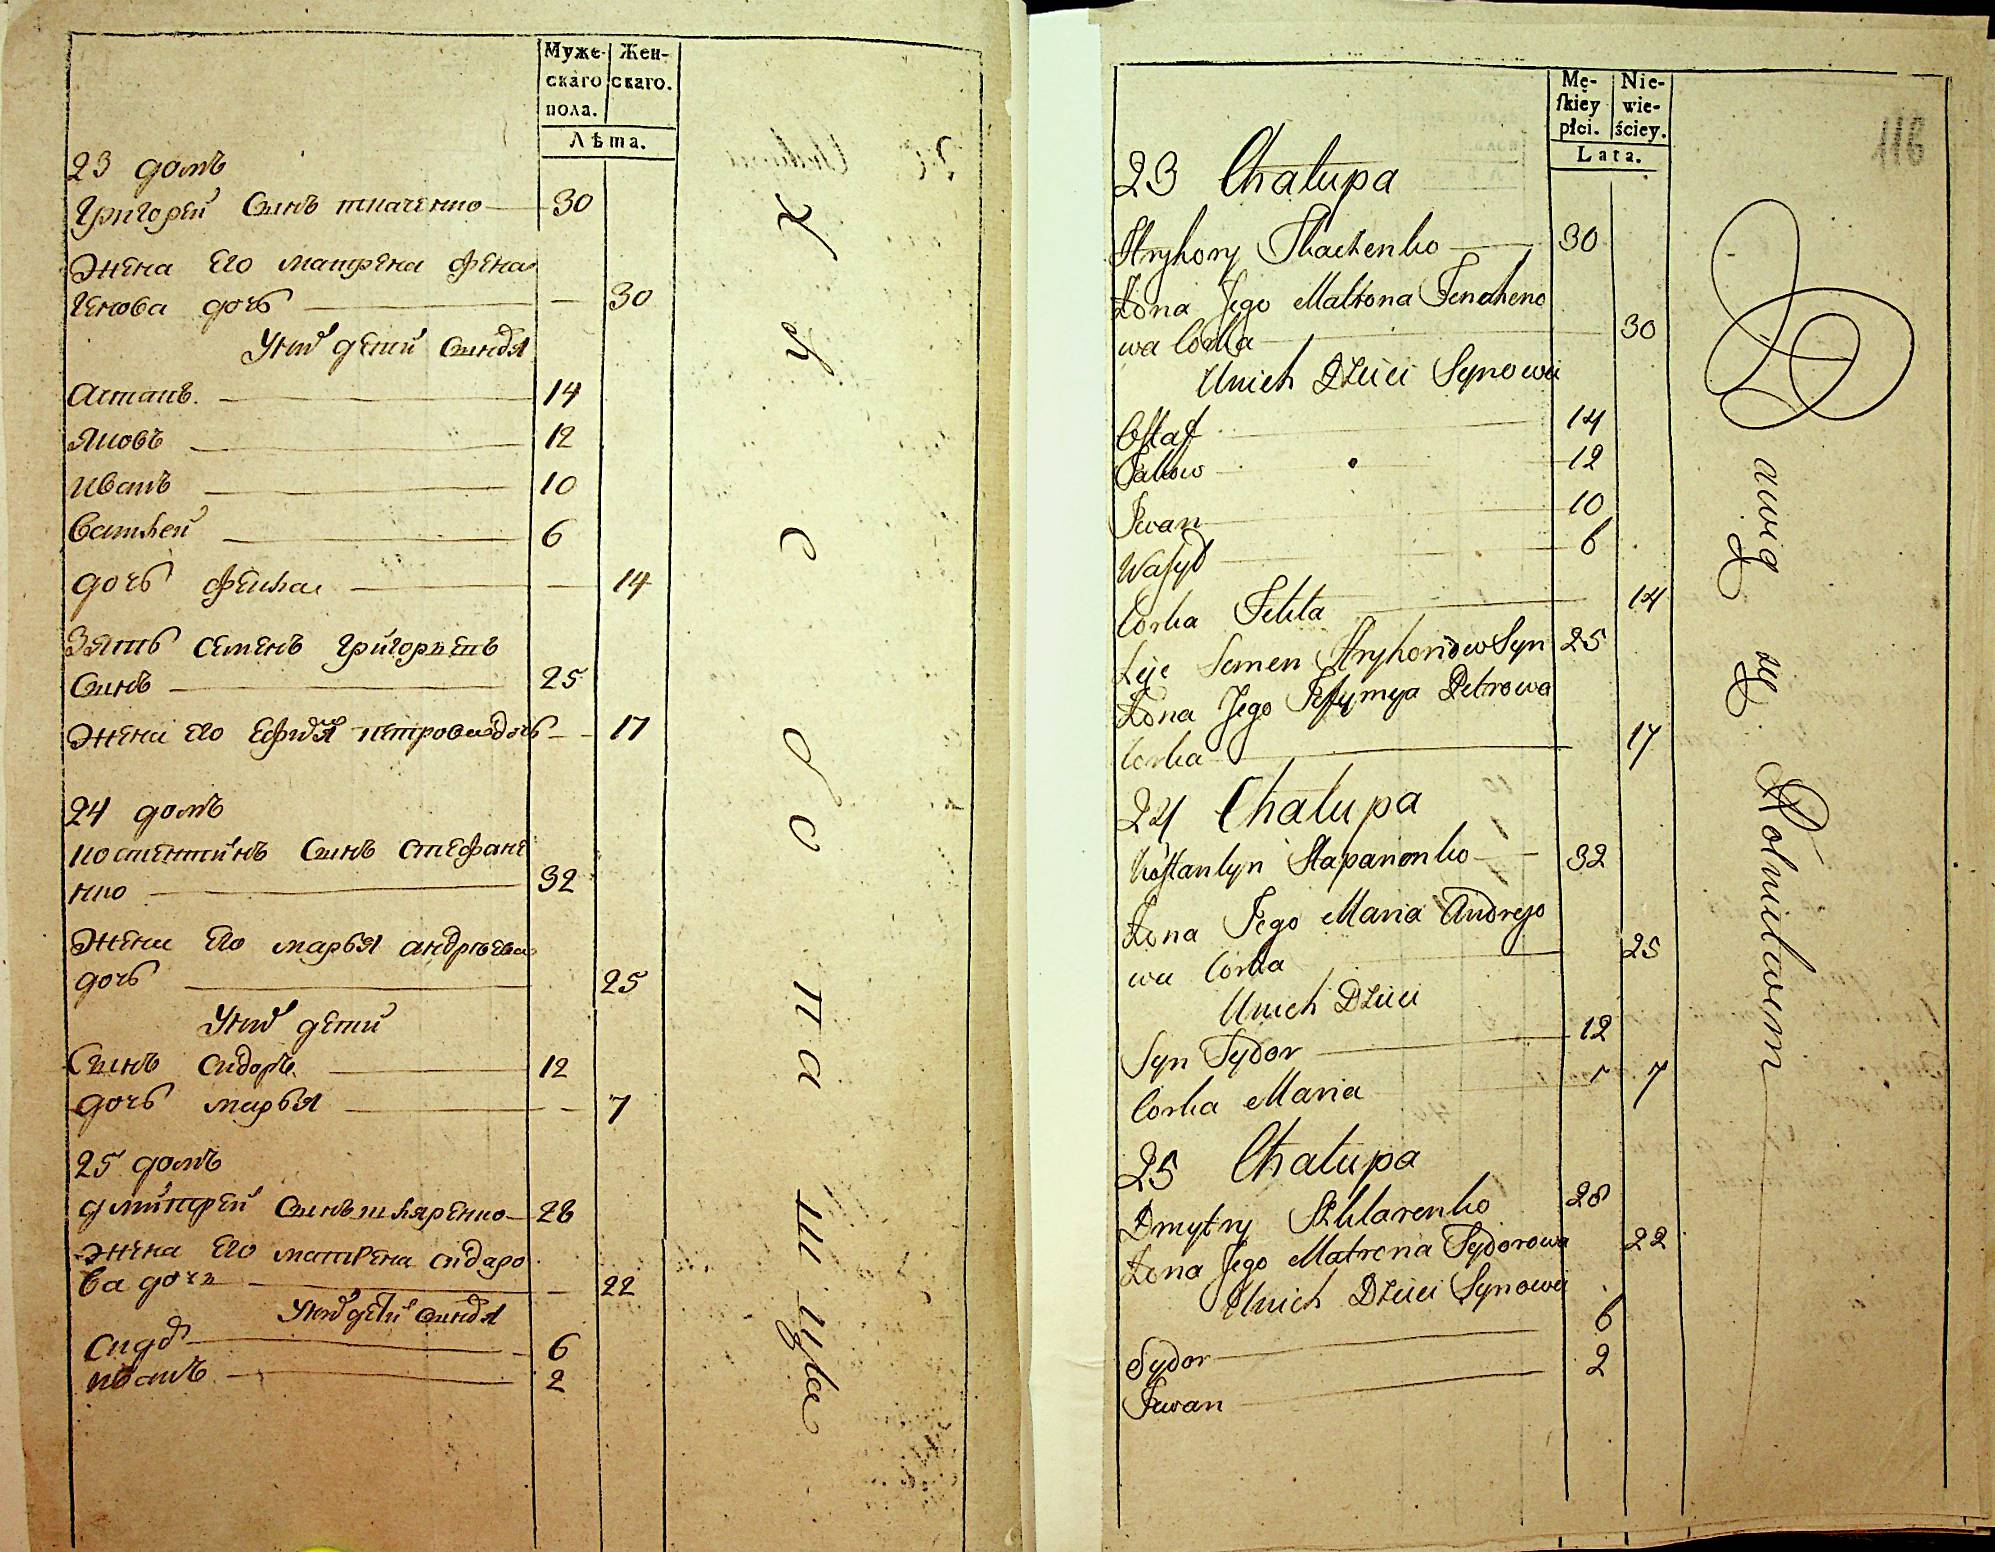 Муже-
скаго
пола.
Жен-
скаго.
Лѣта.
23 домъ
Григорей Синъ ткаченко 30
Жена Его матрена фена
генова дочь 30
У них детей Синовя
Астапъ 14
Яковъ 12
Иванъ 10
Василей 6
дочь фекла 14
Зять Семенъ Григорьевъ
Синъ 25
Жена Его Ефимия петрова дочь 17
24 домъ
Костентинъ Синъ Стефане
нко 32
Жена Его марья андрѣева
дочь 25
У них дети
Синъ Сидоръ 12
дочь марья 7
25 домъ
дмитрей Синъ шкляренко 28
Жена Его матрена сидаро
ва дочь 22
У них детей Синовя
Сидор 6
иванъ 2
Хлебопашцы
Mę-
ſkiey
płci.
Nie-
wie-
ściey.
Lata.
116
23 Chałupa
Hryhory Tkaczenko 30
Żona Jego Matrona
wa Corka 30
Unich Dzieci Synowie
Ostaf 14
Jakow 12
Iwan 10
Wasyl 6
Corka Fekła 14
Zięć Semen Hryhoriow Syn 25
Żona Jego Jefymija Petrowa
Corka 17
24 Chałupa
Kostantyn Stapanenko 32
Żona Jego Maria Andrejo
wa Corka 25
Unich Dzieci
Syn Sydor 12
Corka Maria 7
25 Chałupa
Dmytry Szklarenko 28
Żona Jego Matrona Sydorowa 22
Unich Dzieci Synowie
Sydor 6
Iwan 2
Bawią się Rolnictwem